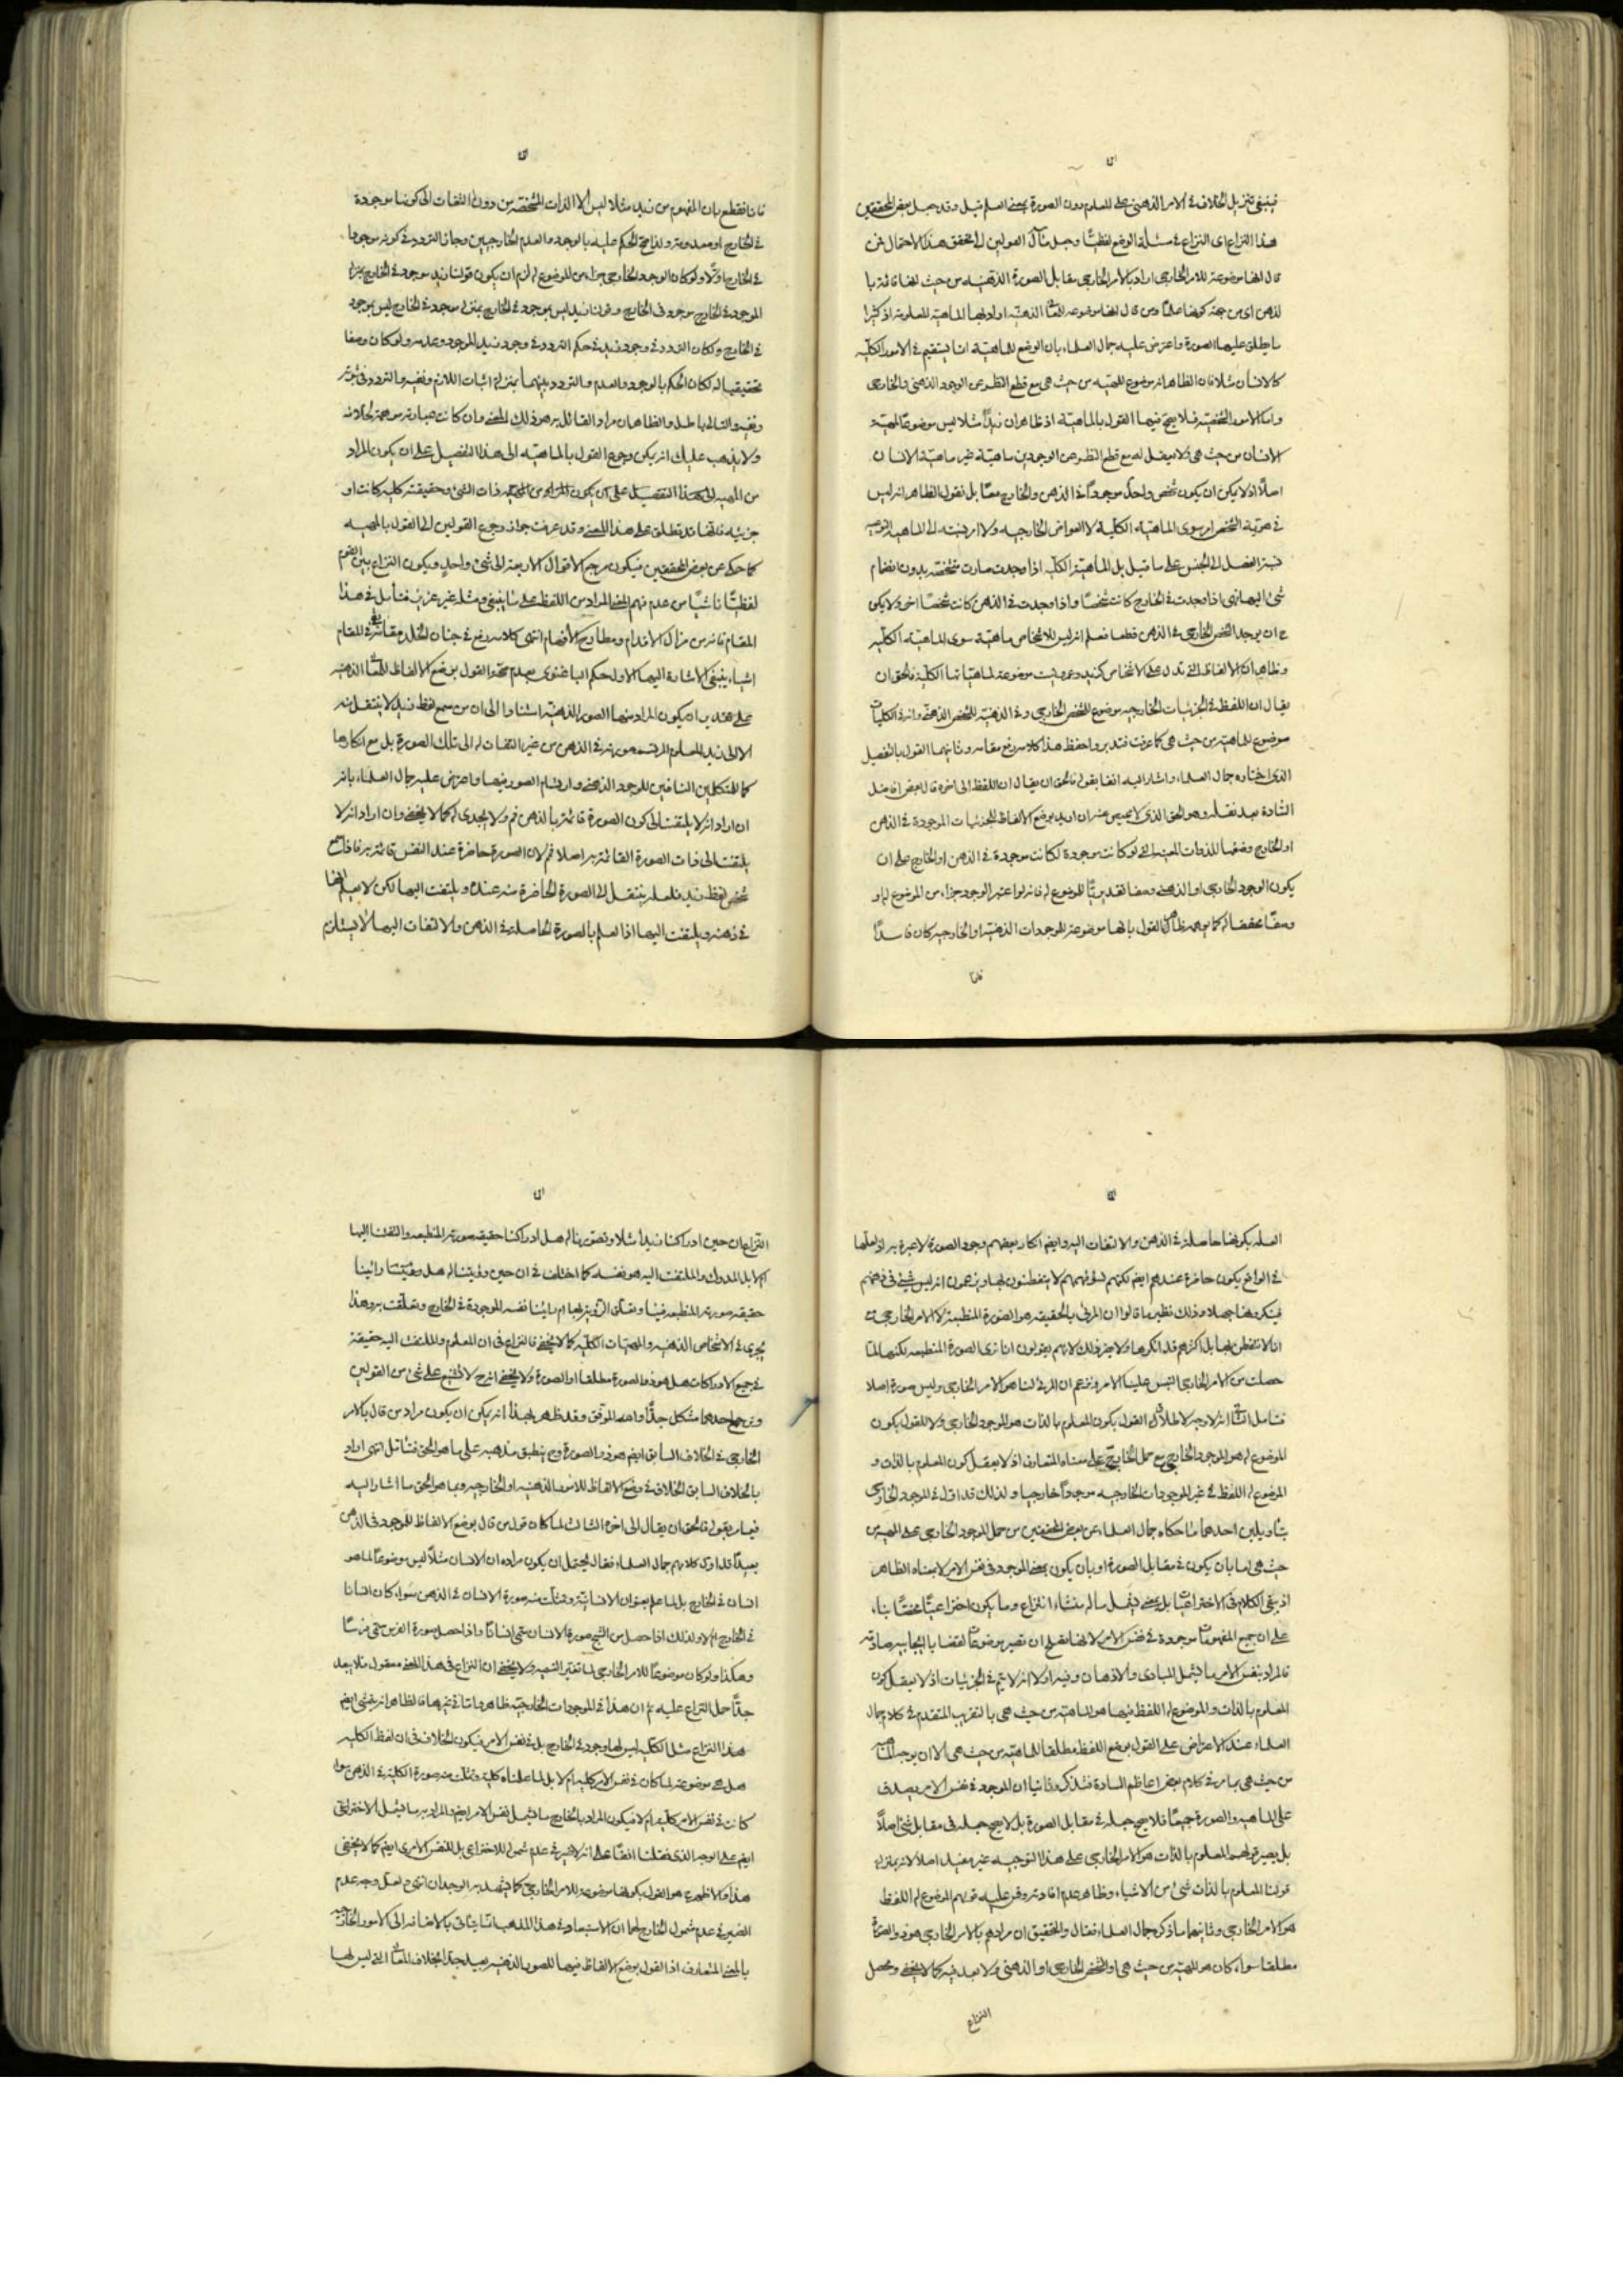 فينبغى تنزيل الخلاف فى الامر الذهنى على المعلوم دون الصورة بمعنى العلم قيل وقد جعل بعض المحققين
هذا النزاع اى النزاع فى مسئلة الوضع لفظيا وجعل مآل القولين الى
قال انها موضوعة للامر الخارجى اراد بالامر الخارجى مقابل الصورة الذهنيه من حيث انها قائمة با
لذهن اى من جهة كونها علما ومن قال انها موضوعه للمعانى الذهنيه اراد بها الماهيه المعلومة اذ كثيرا
ما يطلق عليها الصورة واعترض عليه جمال العلماء بان الوضع للماهيّة انما يستقيم فى الامور الكليّه
كالانسان مثلا فان الظاهر انه موضوع للمهيّه من حيث هى مع قطع النظر عن الوجود الذهنى والخارجى
واما الامور الشخصيّه فلا يصح فيها القول بالماهيّة اذ ظاهر ان زيدًا مثلا ليس موضوعًا لمهيّة
الانسان من حيث هى ولا يعقل له مع قطع النظر عن الوجودين ماهيّة غير ماهيّة الانسان
اصلًا اذ لا يمكن ان يكون شخص واحد موجودًا فى الذهن والخارج معًا بل نقول الظاهر انه ليس
فى هويّة الشخص امر سوى الماهيّة الكليّة لا العوارض الخارجيه ولا امر نسبته الى الماهية النوعيه
نسبة الفصل الى الجنس على ما قيل بل الماهيّة الكليّه اذا وجدت صارت متشخصة بدون انضمام
شئ اليها فهى اذا وجدت فى الخارج كانت شخصًا واذا وجدت فى الذهن كانت شخصًا اخر ولا يمكن
ح ان يوجد الشخص الخارجى فى الذهن قطعا فعلم انه ليس للاشخاص ماهيّة سوى الماهيّة الكليّه
وظاهر ان الالفاظ التى تدل على الاشخاص كزيد وعمرو ليست موضوعة لماهياتها الكليّة فالحق ان
يقال ان اللفظ فى الجزئيات الخارجيه موضوع للشخص الخارجى وفى الذهنيّة للشخص الذهنى وانه فى الكليات
موضوع للماهيّة من حيث هى كما عرفت فتدبر واحفظ هذا كلامه رفع مقامه وثانيهما القول بالتفصيل
الذى اختاره جمال العلماء واشار اليه انفا بقوله فالحق ان يقال ان اللفظ الى اخره قال بعض افاضل
السادة بعد نقله وهو الحق الذى لا محيص عنه ان اريد بوضع الالفاظ للجزئيات الموجودة فى الذهن
او الخارج وضعها للذوات المعينه التى لو كانت موجودة لكانت موجودة فى الذهن او الخارج على ان
يكون الوجود الخارجى او الذهنى وصفا تقديريًا للموضوع له فانه لو اعتبر الوجود جزاء من الموضوع له او
وصفا محققا له كما يوهمه ظاهر القول بانها موضوعة للموجودات الذهنيّة او الخارجيه كان فاسدًا
فانا
فانا نقطع بان المفهوم من زيد مثلا ليس الا الذات المشخصة من دون التفات الى كونها موجودة
فى الخارج او معدومة ولذا صح الحكم عليه بالوجود والعدم الخارجيين وجاز التردد فى كونه موجودا
فى الخارج اولا ولو كان الوجود الخارجى جزاء من الموضوع له لزم ان يكون قولنا زيد موجود فى الخارج بمنزلة
الموجود فى الخارج موجود فى الخارج وقولنا زيد ليس بموجود فى الخارج بمنزلة موجود فى الخارج ليس بموجود
فى الخارج ولكان التردد فى وجود زيد فى حكم التردد فى وجود زيد الموجود وعدمه ولو كان وصفا
تحقيقيا له لكان الحكم بالوجود والعدم والتردد بينهما بمنزلة اثبات اللازم ونفيه والتردد فى ثبوته
ونفيه والتالى باطل والظاهر ان مراد القائل به هو ذلك المعنى وان كانت عبارته موهمة لخلافه
ولا يذهب عليك انه يمكن رجوع القول بالماهيّه الى هذا التفصيل على ان يكون المراد
من المهيه الى هذا التفصيل على ان يكون المراد من المهيه ذات الشئ وحقيقته كليه كانت او
جزئيه فانها قد تطلق على هذا المعنى وقد عرفت جواز رجوع القولين الى القول بالمهيه
كما حكى عن بعض المحققين فيكون مرجع الاقوال الاربعة الى شئ واحد ويكون النزاع بين القوم
لفظيًا ناشيًا من عدم فهم المعنى المراد من اللفظ على ما ينبغى ومثله غير عزيز فتأمل فى هذا
المقام فانه من مزال الاقدام ومطارح الأفهام انتهى كلامه رفع فى جنان الخلد مقامه بقى فى المقام
اشياء ينبغى الاشارة اليها الاول حكم الباغنوى بعدم صحة القول بوضع الالفاظ للمعانى الذهنيه
على تقدير ان يكون المراد منها الصور الذهنيّة استنادا الى ان من سمع لفظ زيد لا ينتقل منه
الا الى زيد المعلوم المرتسمه صورته فى الذهن من غير التفات له الى تلك الصورة بل مع انكارها
كما للمتكلمين النافين للوجود الذهنى وارتسام الصور فيها واعترض عليه جمال العلماء بانه
ان اراد انه لا يلتفت الى كون الصورة قائمة بالذهن فم ولا يجدى له كما لا يخفى وان اراد انه لا
يلتفت الى ذات الصورة القائمة به اصلا فم لان الصورة حاضرة عند النفس قائمة به فاذا سمع
شخص لفظ زيد فلعله ينتقل الى الصورة الحاضرة منه عنده ويلتفت اليها لكن لا يعلم انها
فى ذهنه ويلتفت اليها اذ العلم بالصورة الحاصلة فى الذهن والالتفات اليها لا يستلزم
العلم بكونها حاصلة فى الذهن والالتفات اليه وايضا انكار بعضهم وجود الصورة لا عبرة به اذ لعلها
فى الواقع يكون حاضرة عندهم ايضا لكنهم لسوء فهمهم لا يتفطنون لها ويزعمون انه ليس شئ فى ذهنهم
فينكرونها جهلا وذلك نظير ما قالوا ان المرئى بالحقيقه هو الصورة المنطبعة لا الامر الخارجى مع
انا لا نتفطن لها بل اكثرهم قد انكروها ولا يضر ذلك لانهم يقولون انا نرى الصورة المنطبعه لكنها لما
حصلت من الامر الخارجى التبس علينا الامر ونزعم ان المرئى لنا هو الامر الخارجى وليس صورة اصلا
فتامل الثانى انه لا وجه لاطلاق القول بكون المعلوم بالذات هو الموجود الخارجى ولا للقول بكون
الموضوع له هو الموجود الخارجى مع حمل الخارجى على معناه المتعارف اذ لا يعقل كون المعلوم بالذات و
الموضوع له اللفظ فى غير الموجودات الخارجيه موجودًا خارجيا ولذلك قد اول فى الموجود الخارجى
بتاويلين احدهما ما حكاه جمال العلماء عن بعض المحققين من حمل الموجود الخارجى على المهيه من
حيث هى اما بان يكون فى مقابل الصورة او بان يكون بمعنى الموجود فى نفس الامر لا بمعناه الظاهر
اذ بقى الكلام فى الاختراعيات بل بمعنى يشمل ماله منشاء انتزاع وما يكون اختراعيًا محضًا بناء
على ان جميع المفهومات موجودة فى نفس الامر لانها تصلح ان تصير موضوعات لقضايا ايجابيه صادقه
فالمراد بنفس الامر ما يشمل المبادى والاذهان وفيه اولا انه لا يتم فى الجزئيات اذ لا يعقل كون
المعلوم بالذات والموضوع له اللفظ فيها هو الماهيّه من حيث هى بالتقريب المتقدم فى كلام جمال
العلماء عند الاعتراض على القول بوضع اللفظ مطلقا للماهيّه من حيث هى الا ان يوجه الماهيه
من حيث هى بما مر فى كلام بعض اعاظم السادة فتذكر وثانيا ان الموجود فى نفس الامر يصدق
على الماهيه والصورة جميعًا فلا يصح جعله فى مقابل الصورة بل لا يصح جعله فى مقابل شئ اصلًا
بل يصير قولهم المعلوم بالذات هو الامر الخارجى على هذا التوجيه غير مفيد اصلا لانه بمنزلة
قولنا المعلوم بالذات شئ من الاشياء وظاهر عدم افادته وقس عليه قولهم الموضوع له اللفظ
هو الامر الخارجى وثانيهما ما ذكره جمال العلماء فقال والتحقيق ان مرادهم بالامر الخارجى هو ذو الصورة
مطلقا سواء كان هو المهيّه من حيث هى او الشخص الخارجى او الذهنى ولا بعد فيه كما لا يخفى ومحصل
النزاع
النزاع ان حين ادراكنا زيدًا مثلا وتصورنا له هل ادراكنا حقيقه صورته المنطبعه والتفتنا اليها
ام لا بل المدرك والملتفت اليه هو نفسه كما اختلف فى ان حين رؤيتنا له هل رؤيتنا وائينا
حقيقه صورته المنطبعه فينا وتعلق الرؤية بها ام راينا نفسه الموجودة فى الخارج وتعلقت به وهذا
يجرى فى الاشخاص الذهنيه والمهيات الكليه كما لا يخفى فالنزاع فى ان المعلوم والملتفت اليه حقيقة
فى جميع الادراكات هل هو ذو الصورة مطلقا او الصورة ولا يخفى انه ح لا تشنيع على شئ من القولين
وترجيح احدهما مشكل جدًا والله الموفق وقد ظهر بهذا انه يمكن ان يكون مراد من قال بالامر
الخارجى فى الخلاف السابق ايضا هو ذو الصورة وح ينطبق مذهبه على ما هو الحق فتامل انتهى اراد
بالخلاف السابق الخلاف فى وضع الالفاظ للامور الذهنيه او الخارجيه وبما هو الحق ما اشار اليه
فيما مر بقوله فالحق ان يقال الى اخره الثالث لما كان قول من قال بوضع الالفاظ للموجود فى الذهن
بعيدًا قد اوّل كلامهم جمال العلماء فقال يحتمل ان يكون مراده ان الانسان مثلًا ليس موضوعًا لما هو
انسان فى الخارج بل لما علم بعنوان الانسانيّة وتمثلت منه صورة الانسان فى الذهن سواء كان انسانا
فى الخارج ام لا ولذلك اذا حصل من الشبح صورة الانسان سمى انسانًا واذا حصل صورة الفرس سمى فرسًا
وهكذا ولو كان موضوعًا للامر الخارجى لما تغير التسميه ولا يخفى ان النزاع فى هذا المعنى معقول فلا يبعد
جدًا حمل النزاع عليه ثم ان هذا فى الموجودات الخارجيّه ظاهر واما فى غيرها فالظاهر انه يتمشى ايضا
هذا النزاع مثلا الكليّه ليس لها وجود فى الخارج بل فى نفس الامر فيكون الخلاف فى ان لفظ الكليه
هل هى موضوعة لما كان فى نفس الامر كليه ام لا بل لما علمناه كلية وتمثلت منه صورة الكليّة فى الذهن سواء
كانت فى نفس الامر كلية ام لا فيكون المراد بالخارج ما يشمل نفس الامر ايضا والمراد به ما يشمل الاختراعى
ايضا على الوجه الذى نقلنا انفًا على انه لا ضير فى عدم شموله للاختراعى بل للنفس الامرى ايضا كما لا يخفى
هذا والاظهر هو القول بكونها موضوعة للامر الخارجى كما يشهد به الوجدان انتهى ولعل وجه عدم
الضير فى عدم شمول الخارج لهما ان الاستبعاد فى هذا المذهب انما يتاتى بالاضافه الى الامور الخارجيه
بالمعنى المتعارف اذ القول بوضع الالفاظ فيها للصور الذهنيه بعيد جدًا بخلاف المعانى التى ليس لها